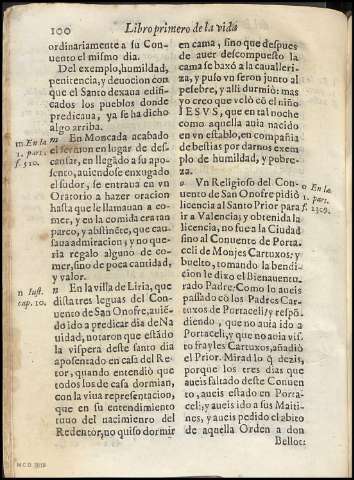 100 Libro primero de la vida
ordinariamente a su Con-
uento el mismo dia.
Del exemplo, humildad,
penitencia, y deuocion con
que el Santo dexaua edifi-
cados los pueblos donde
predicaua, ya se ha dicho
algo arriba.
m En la
1. part.
f. 510.
m En Moncada acabado
el sermon en lugar de des-
cansar, en llegado a su apo-
sento, auiendose enxugado
el sudor, se entraua en vn
Oratorio a hazer oracion
hasta que le llamauan a co-
mer, y en la comida era tan
parco, y abstinẽte, que cau-
saua admiracion, y no que-
ria regalo alguno de co-
mer, sino de poca cantidad,
y valor.
n Iust.
cap. 10.
n En la villa de Liria, que
dista tres leguas del Conuento
de San Onofre, auiẽ-
do ido a predicar dia de Na
uidad, notaron que estãdo
la vispera deste santo dia
aposentado en casa del Re-
tor, quando entendiò que
todos los de casa dormian,
con la viua representacion,
que en su entendimiento
tuuo del nacimiento del
Redentor, no quiso dormir
en cama, sino que despues
de auer descompuesto la
cama se baxò a la caualleri-
za, y puso vn seron junto al
pesebre, y alli durmiò: mas
yo creo que velò cõ el niño
IESVS, que en tal noche
como aquella auia nacido
en vn establo, en compañia
de bestias por darnos exem
plo de humildad, y pobre-
za.
o En la
1. part.
f. 1309.
o Vn Religioso del Con-
uento de San Onofre pidiò
licencia al Santo Prior para
ir a Valencia; y obtenida la
licencia, no fue a la Ciudad
sino al Conuento de Porta-
celi de Monjes Cartuxos: y
buelto, tomando la bendi-
cion le dixo el Bienauentu-
rado Padre: Como lo aueis
passado cõ los Padres Car-
tuxos de Portaceli? y respõ
diendo, que no auia ido a
Portaceli, y que no auia vis-
to frayles Cartuxos, añadiò
el Prior. Mirad lo q̃ dezis,
porque los tres dias que
aueis faltado deste Conuen
to, aueis estado en Porta-
celi, y aueis ido a sus Maiti-
nes, y aueis pedido el abito
de aquella Orden a don
Bellot:
MCD 2018